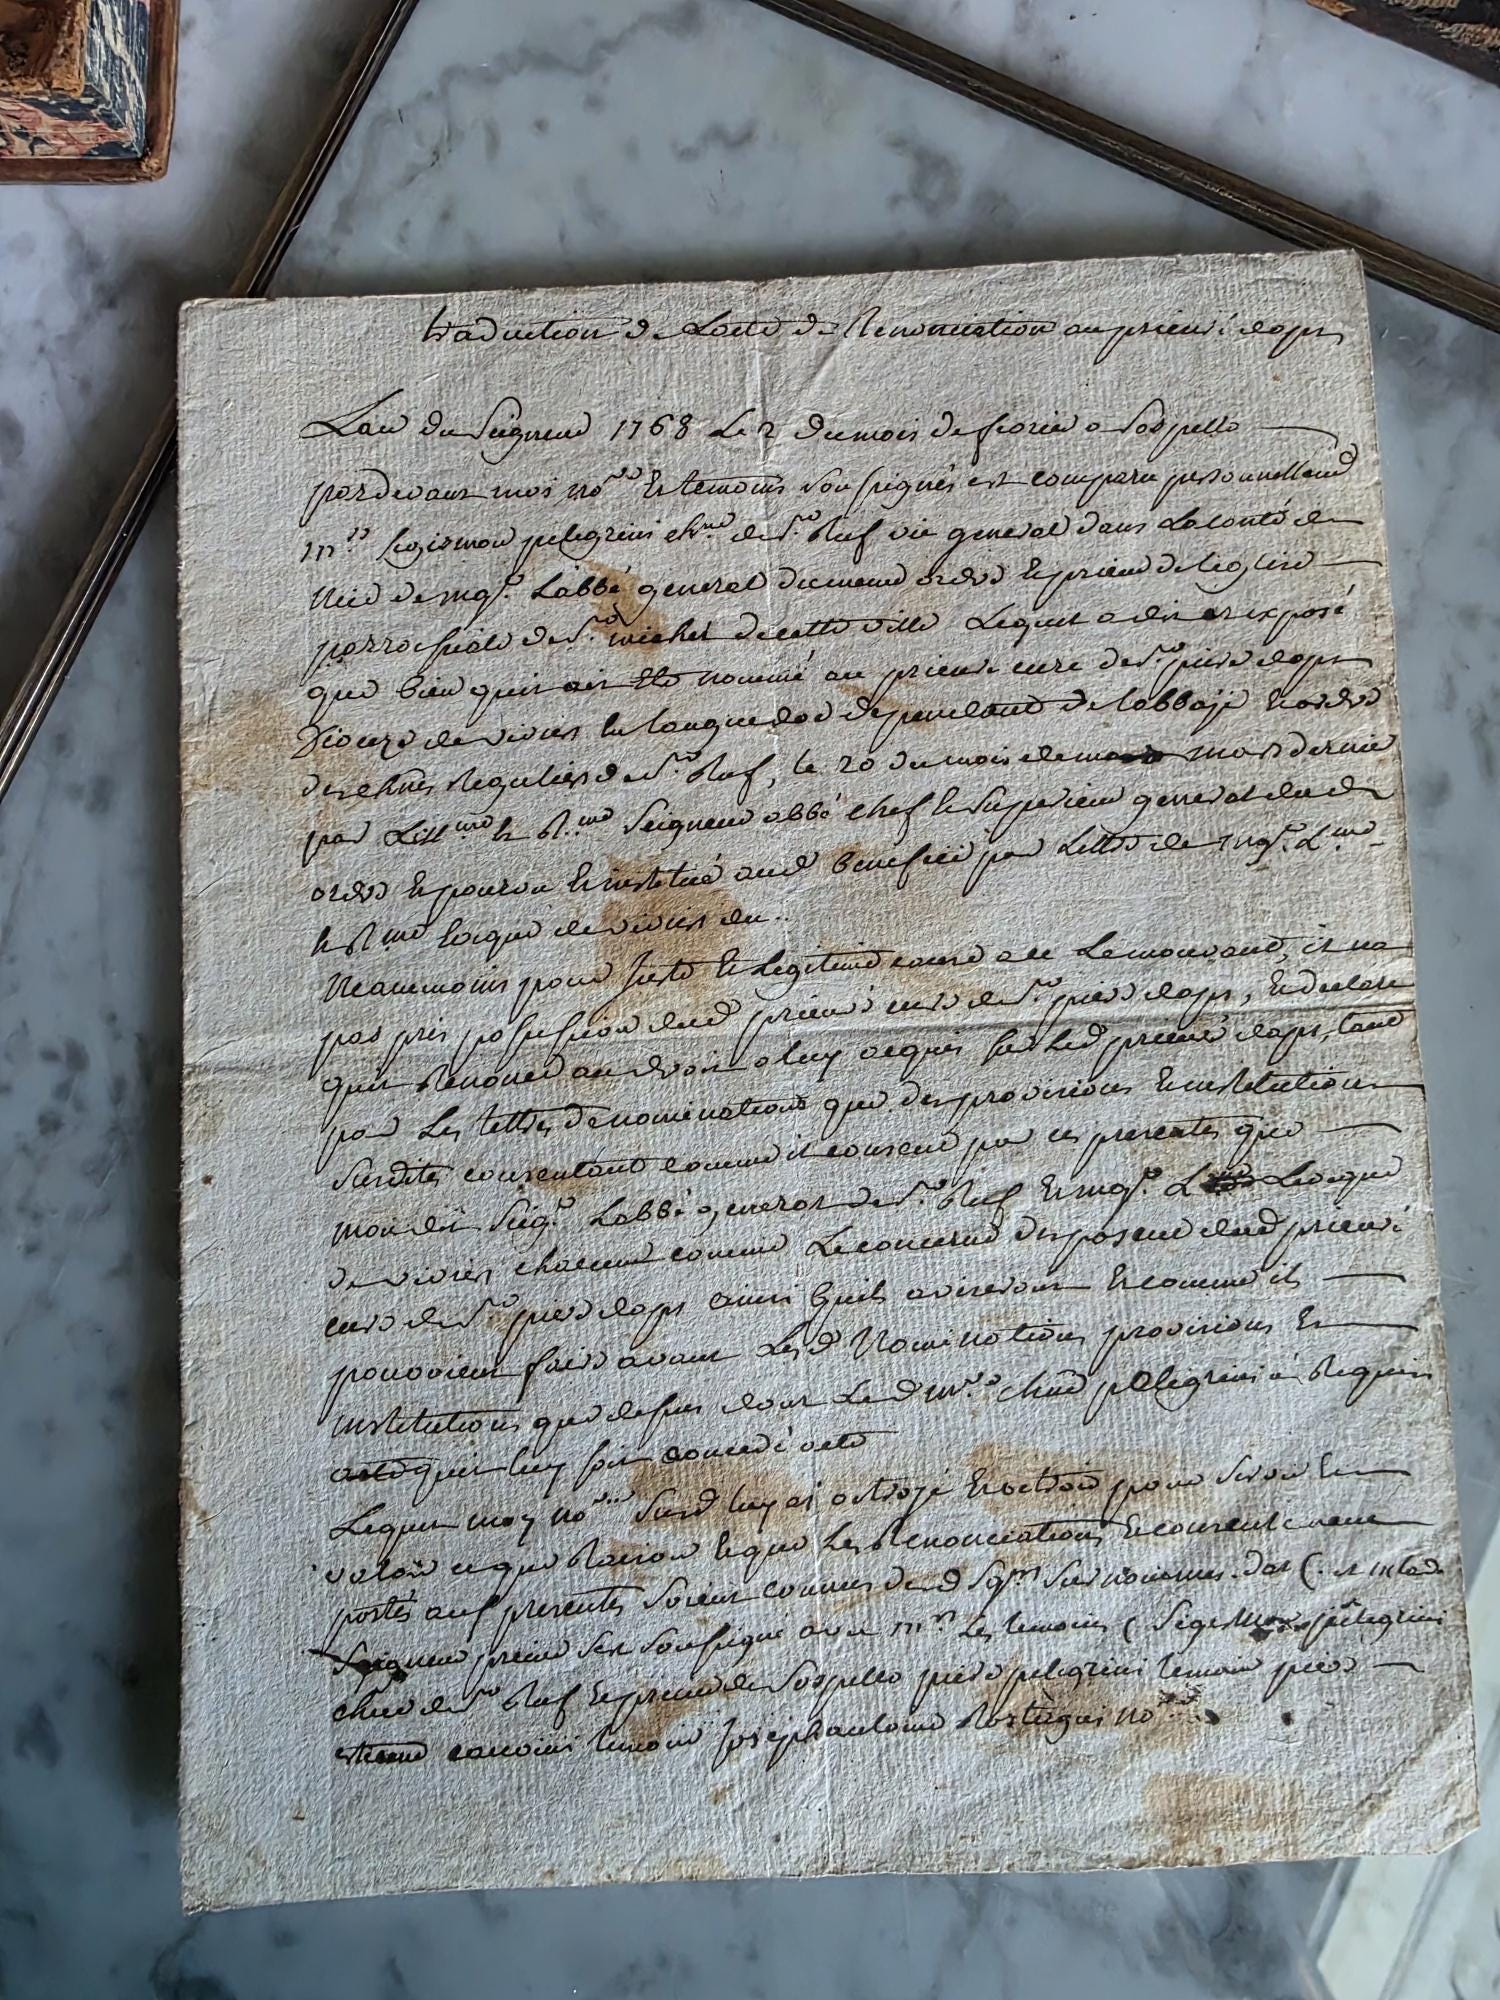 traduction de Lacte de Renonciation au prieuré daps
Lan du Seigneur 1768 Le 2 du mois de fevrier a Sospello
pardevant moi no.re et temoins soussignés est comparu personnellement
m.re pelegrini ch.ne de S.t Ruf vic general dans La comté de
Nice de mgr. Labbé general du meme ordre et prieur de leglise
parrochiale de S.t michel de cette ville Lequel a dit et exposé
que bien quil ait ete nommé au prieuré cure de S.t pierre daps
Dioceze de viviers en languedoc dependant de labbaje et ordre
des chnes Reguliers de S.t Ruf, le 20 du mois de mars dernier
par Lill.me et R.me Seigneur abbé chef et Superieur general dud
ordre et pourvu et institué aud benefice par Lettre de mgr. L.me
et R.me Eveque de viviers du ..
Neanmoins pour juste et Legitime cause a ce Le mouvant, il na
pas pris possession dud prieuré cure de S.t pierre daps, et declare
quil Renonce au droit a luy acquis sur Led prieuré daps, tant
par Les lettres de nomination que des provisions et institutions
susdites consentant comme il consent par ces presentes que
mon dit Seigr. Labbé general de S.t Ruf et mgr. Leveque
de viviers chacun comme Le concerne disposent dud prieuré
cure de S.t pierre daps ainsi quils aviseront et comme ils
pouvoient faire avant Lesd Nominations provisions et
institutions que dessus dont Led m.re chne pellegrini à Requis
quil luy soit concedé acte
Lequel moy no.re susd luy ai octrojé et octroie pour servir et
valoir ce que Raison et que Les Renonciations et consentement
portés aux presentes soient connus dud Sgrs surnommés. et mond
Seigneur prieur sest soussigné avec m.rs Les temoins ( pelegrini
chne de S.t Ruf et prieur de Sospello piere pelegrini temoin piere
canoine temoin Joseph antoine no.re